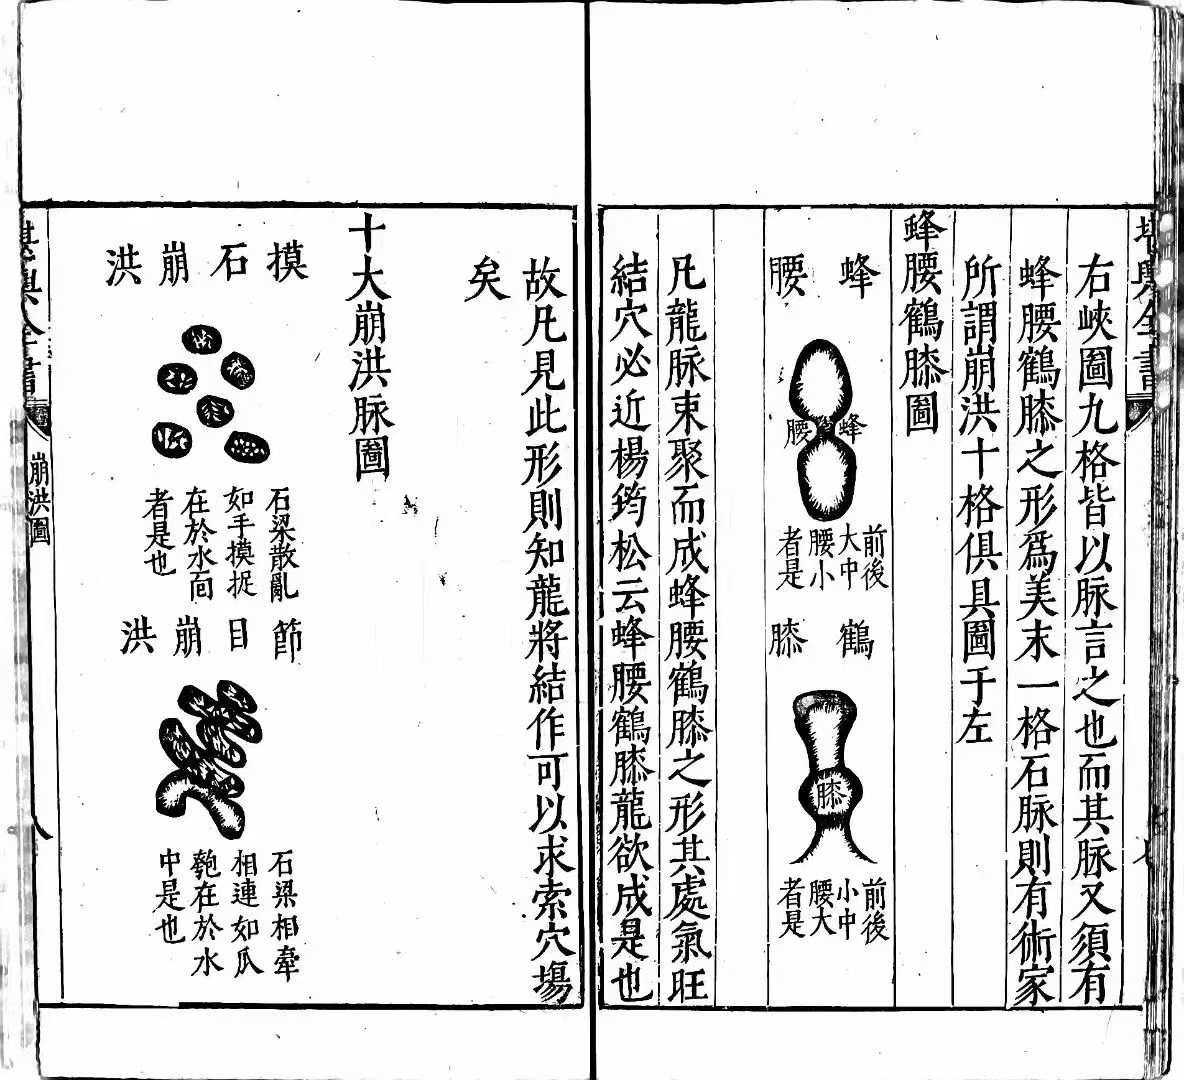 堪輿全書
右峽圖九格皆以脉言之也而其脉又須有
蜂腰鶴膝之形爲美末一格石脉則有術家
所謂崩洪十格俱具圖于左
蜂腰鶴膝圖
蜂腰
蜂腰
前後
大中
腰小
者是
鶴膝
膝
前後
小中
腰大
者是
凡龍脉束聚而成蜂腰鶴膝之形其處氣旺
結穴必近楊筠松云蜂腰鶴膝龍欲成是也
故凡見此形則知龍將結作可以求索穴塲
矣
十大崩洪脉圖
摸石崩洪
石梁散亂
如手摸捉
在於水面
者是也
節目崩洪
石梁相牽
相連如瓜
匏在於水
中是也
堪輿全書
崩洪圖
八